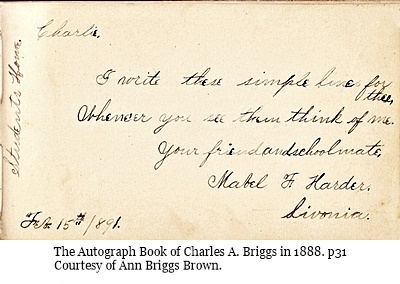 Charlie,
I write these simple lines for
thee,
Whenever you see them think of me.
Your friend and schoolmate,
Mabel F. Harder.
Livonia.
Feb. 15th 1891.
Students Home.
The Autograph Book of Charles A. Briggs in 1888. p31
Courtesy of Ann Briggs Brown.